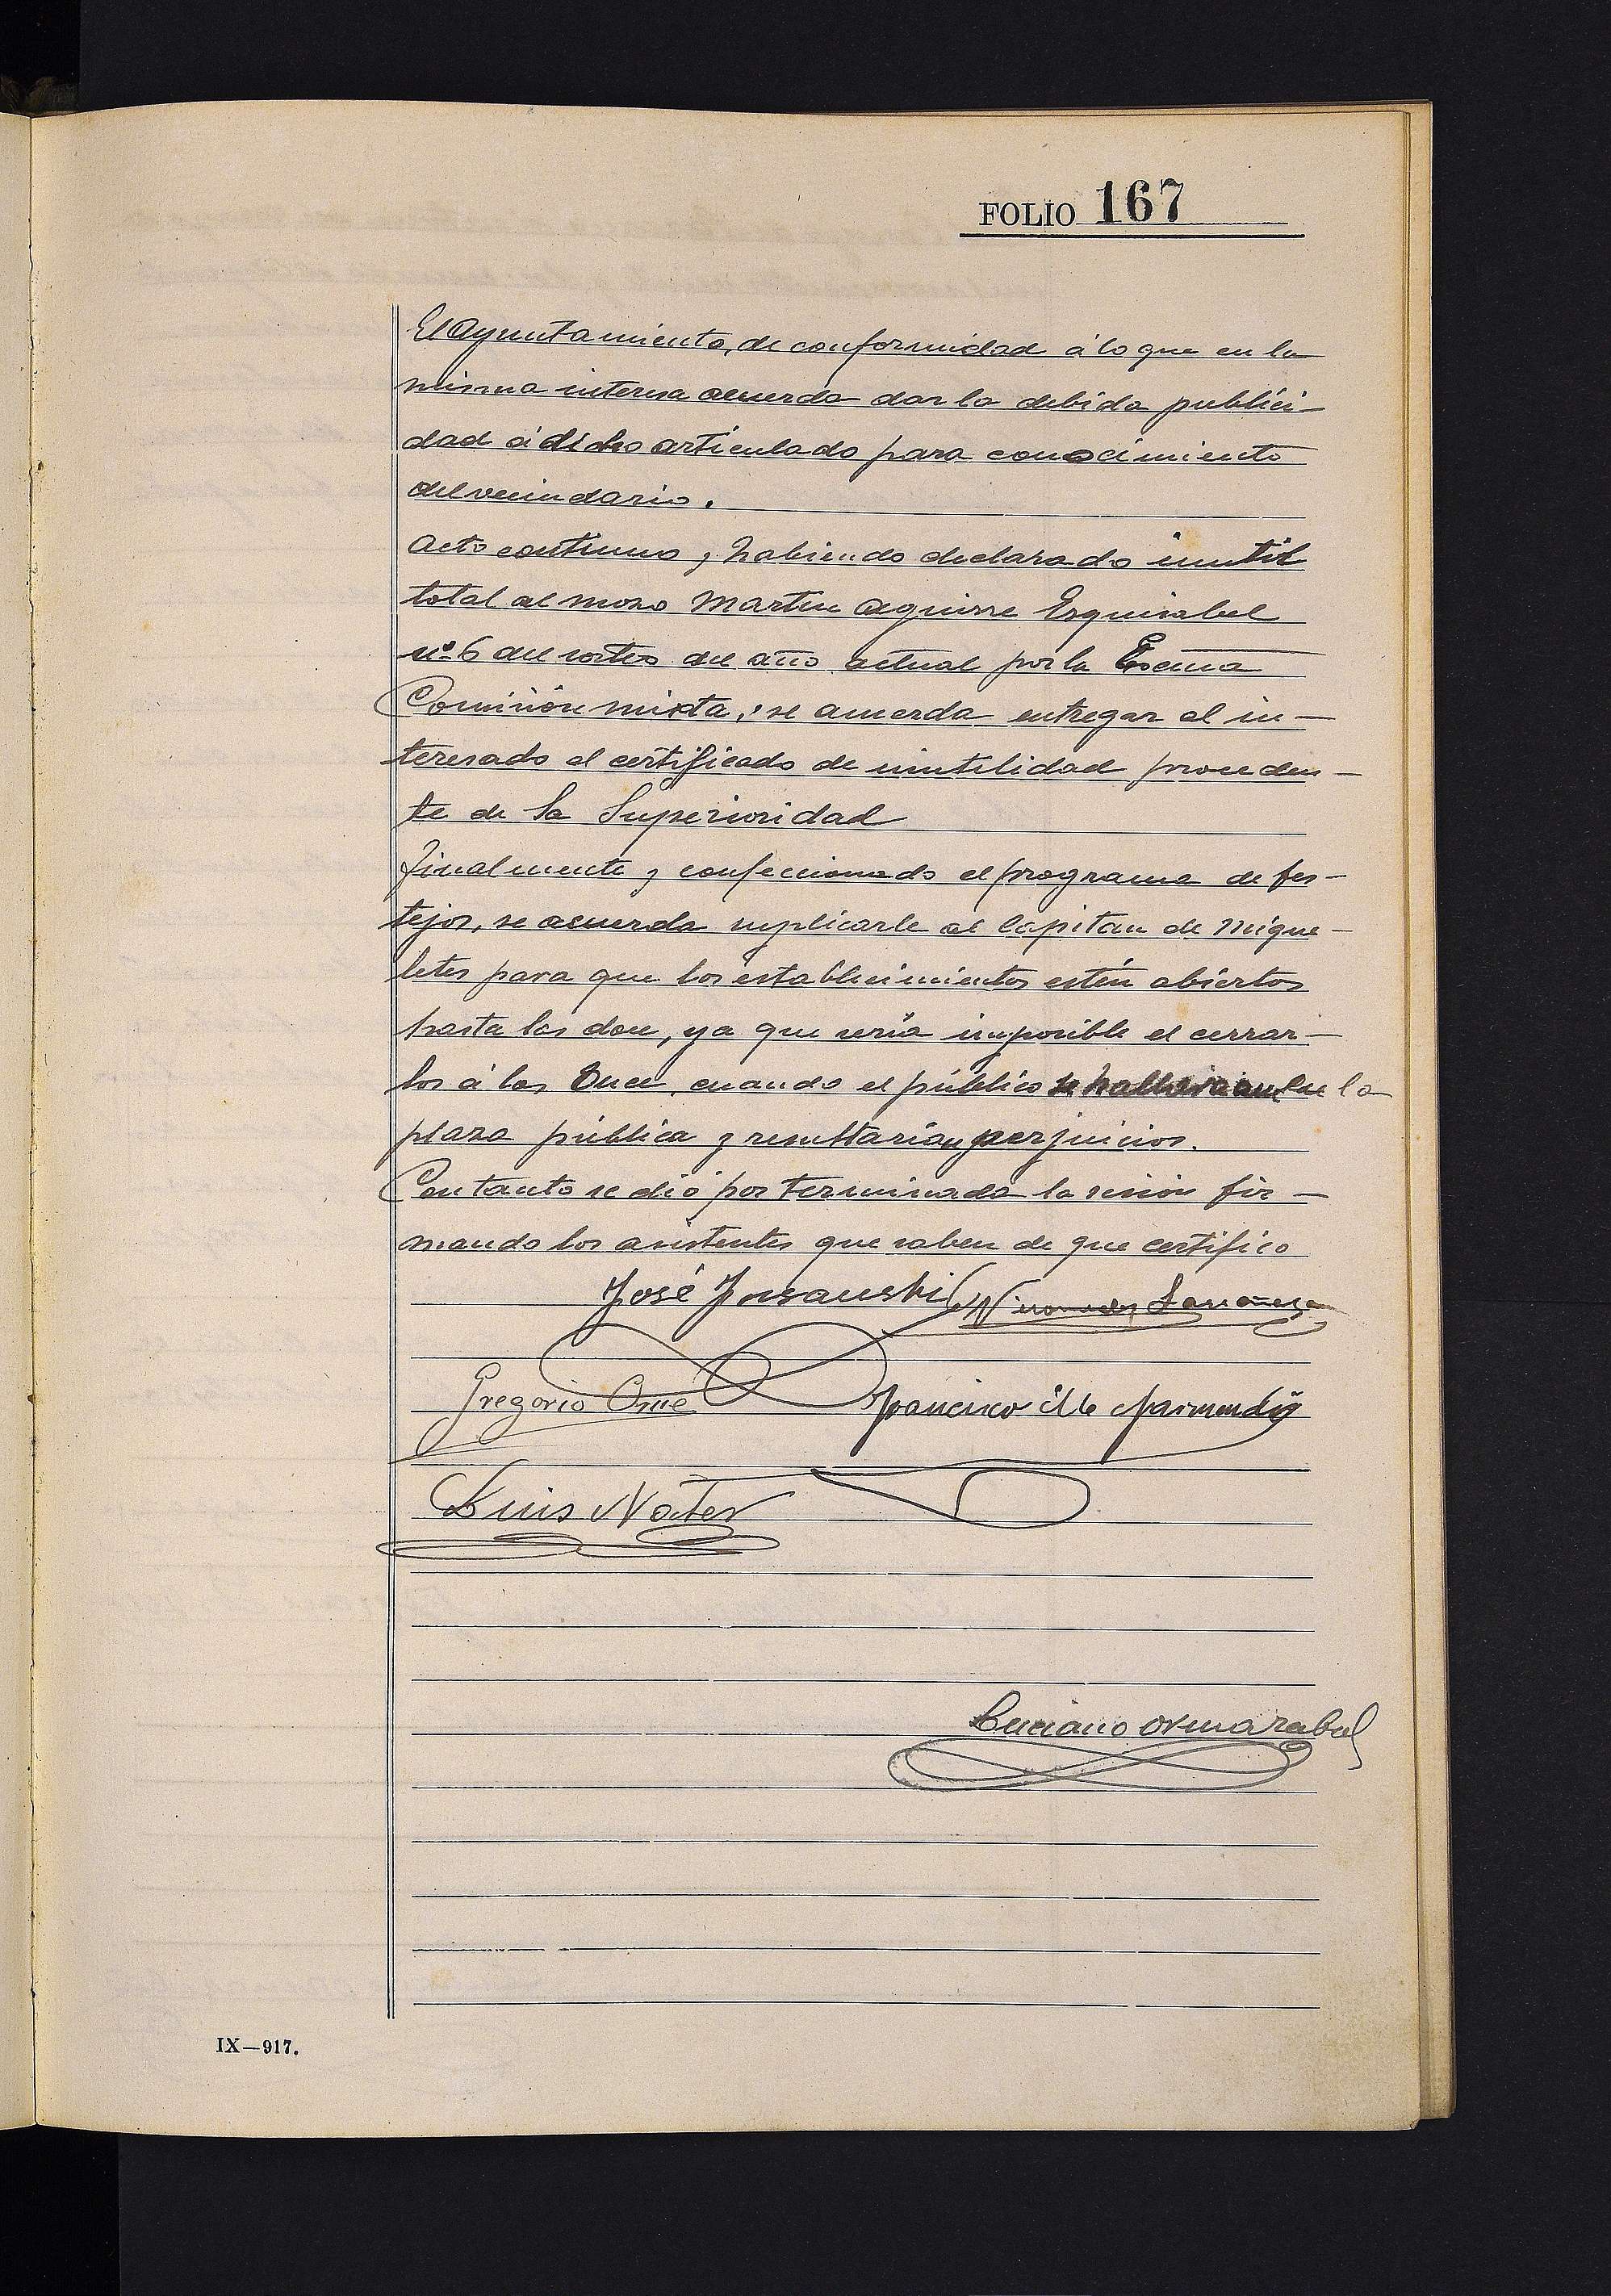 FOLIO 167
El Ayuntamiento, de conformidad á lo que en la
misma interesa acuerda dar la debida publici-
dad á dicho articulado para conocimiento
del vecindario.
Acto continuo y habiendo declarado inutil
total al mozo Martin Aguirre Esquisabel
nº 6 del sorteo del año actual por la Excma
Comisión mixta, se acuerda entregar al in-
teresado el certificado de inutilidad proceden-
te de la Superioridad
Finalmente y confeccionado el programa de fes-
tejos, se acuerda suplicarle al Capitan de Mique-
letes para que los establecimientos estén abiertos
hasta las doce, ya que sería imposible el cerrar-
los á las Once, cuando el público se en la
plaza pública y resultarían perjuicios.
Con tanto se dió por terminada la sesión fir-
mando los asistentes que saben de que certifico
José
Gregorio
Francisco
Luis
Luciano Ormazabal
IX—917.